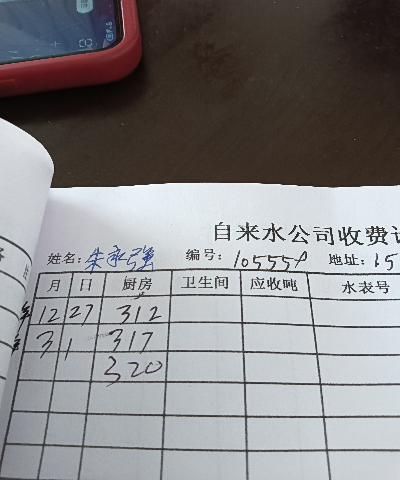 自来水公司收费
姓名:朱永强 编号:105558 地址:15
月 日 厨房 卫生间 应收吨 水表号
12 27 312
3 1 317
320